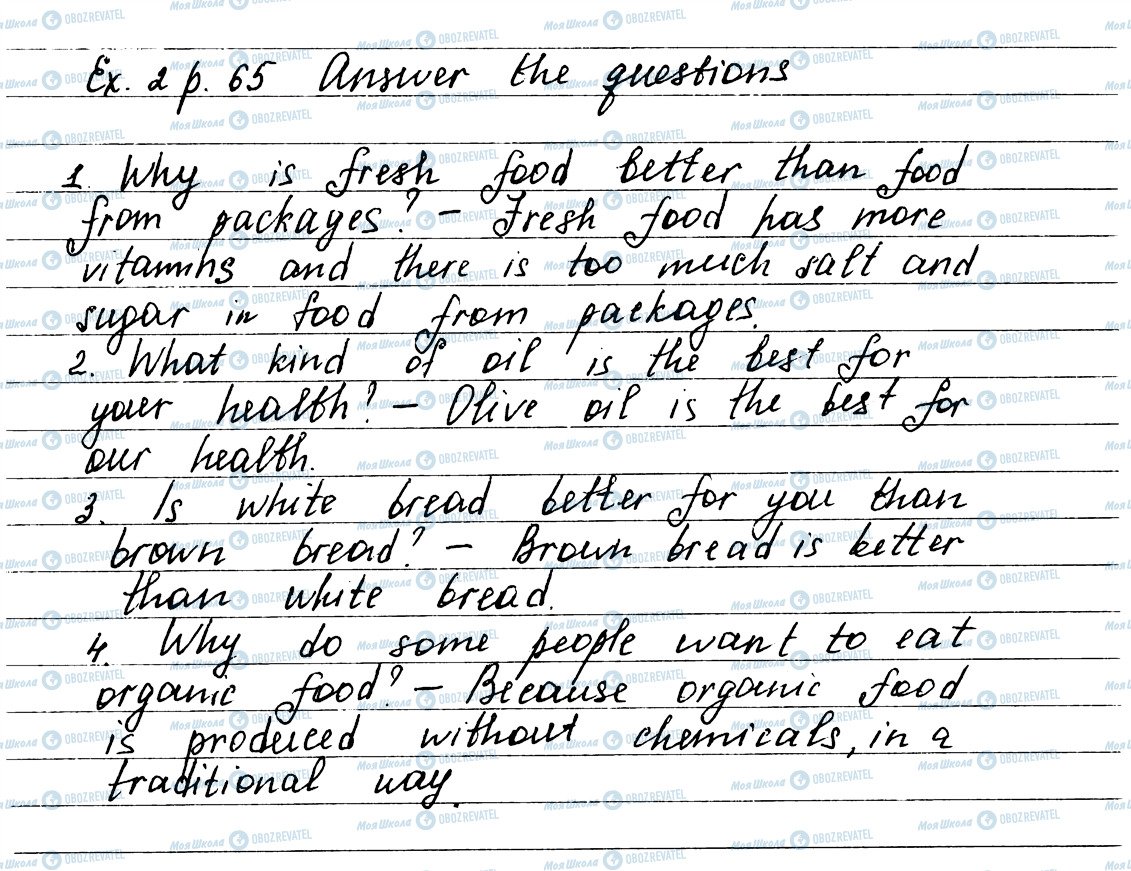 Ex. 2 p. 65 Answer the questions
1. Why is fresh food better than food
from packages? – Fresh food has more
vitamins and there is too much salt and
sugar in food from packages.
2. What kind of oil is the best for
your health? – Olive oil is the best for
our health.
3. Is white bread better for you than
brown bread? – Brown bread is better
than white bread.
4. Why do some people want to eat
organic food? – Because organic food
is produced without chemicals, in a
traditional way.
МояШкола OBOZREVATEL